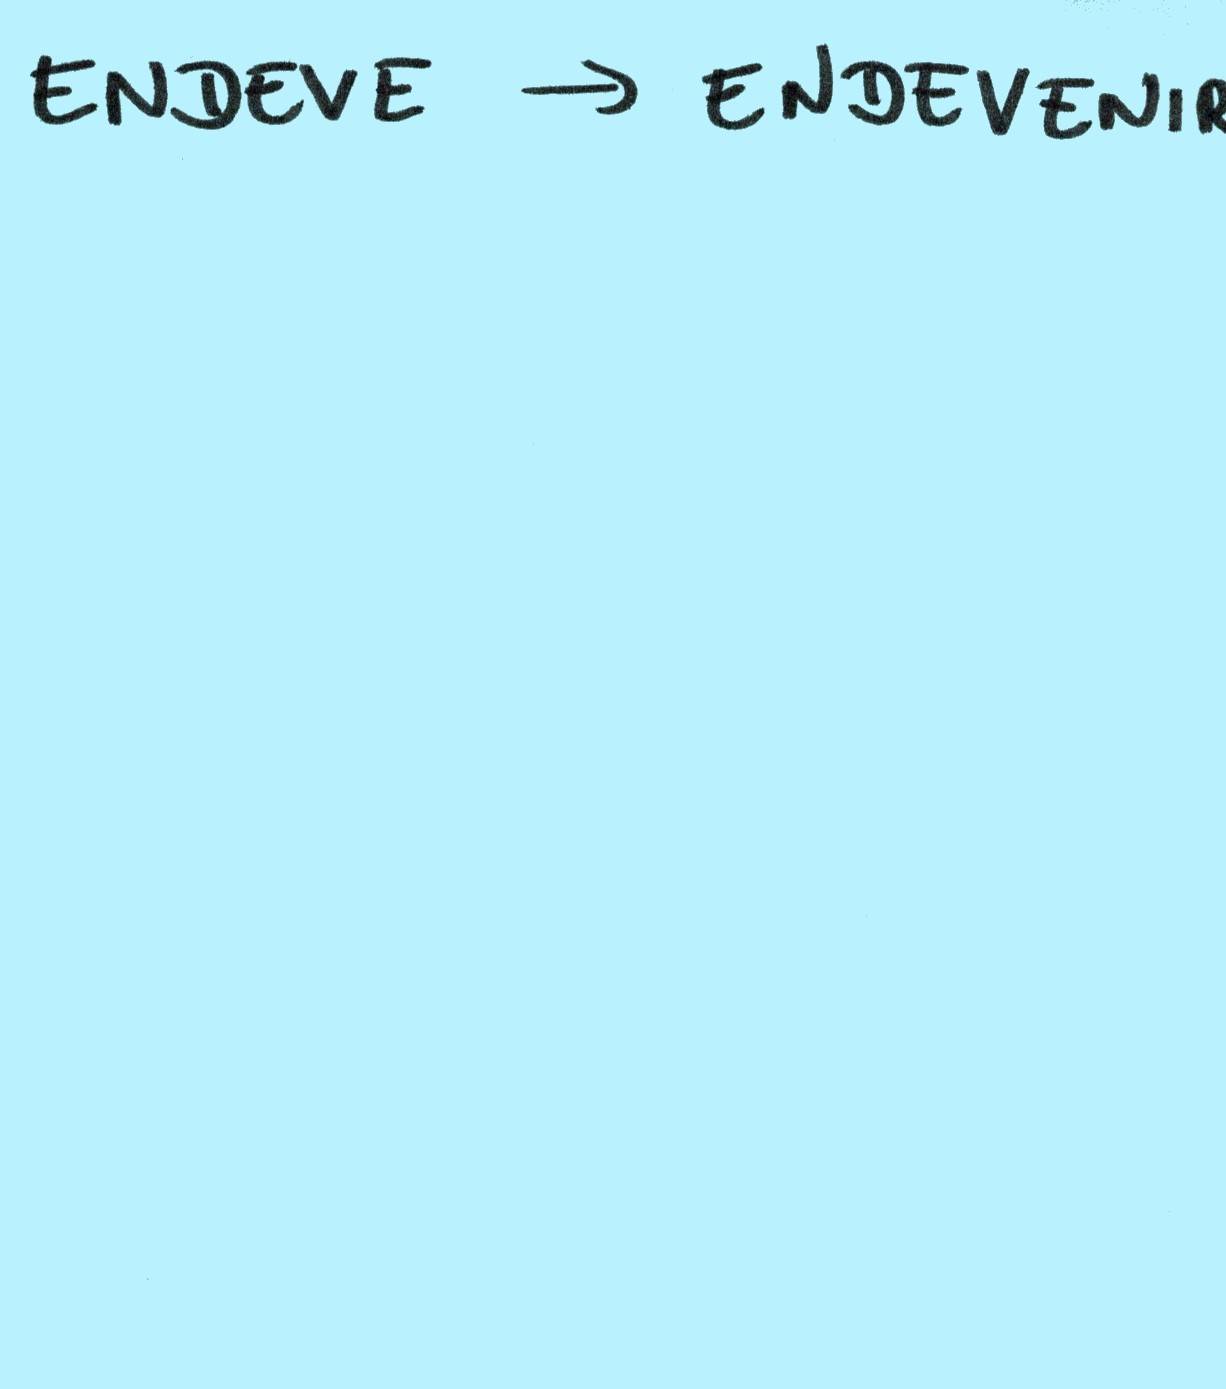 ENDEVE → ENDEVENIR